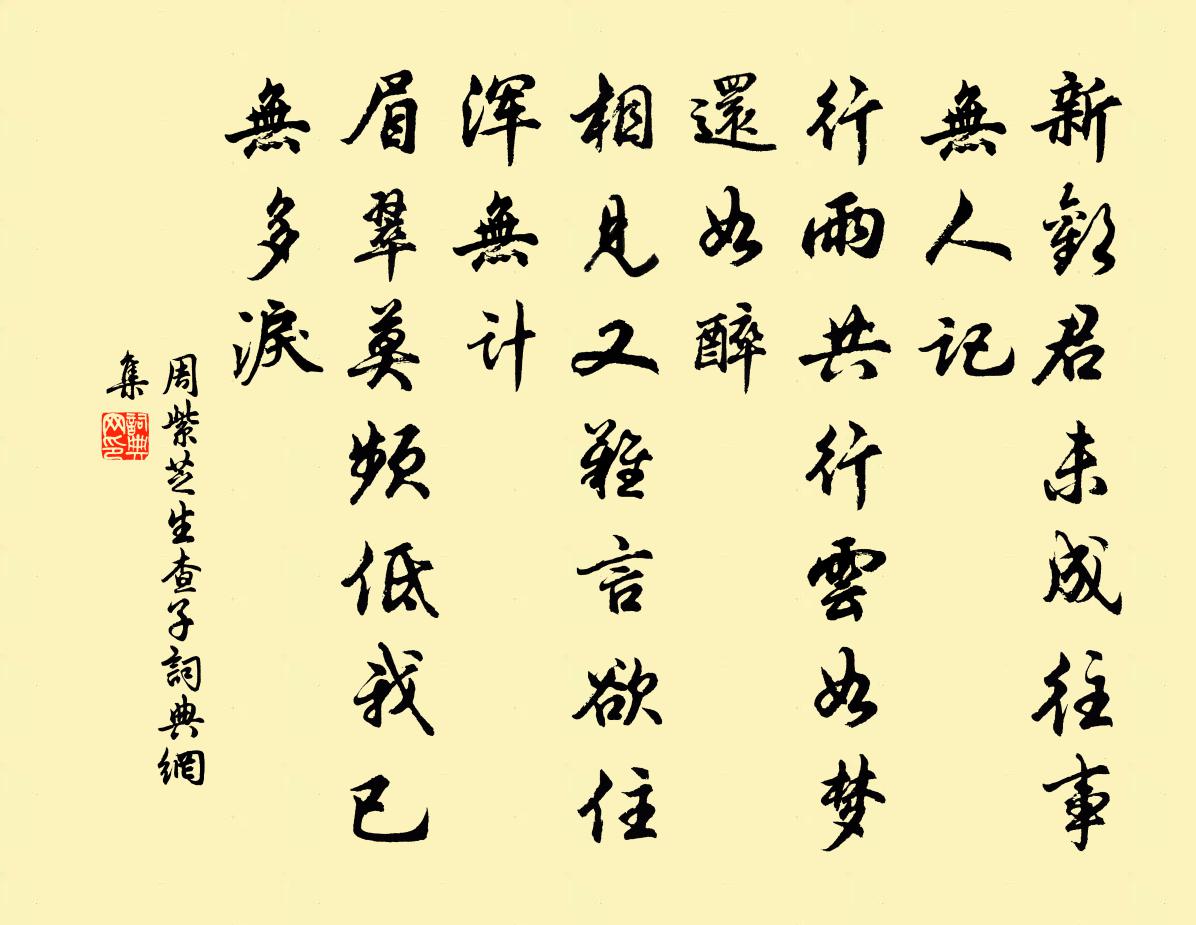 新歡君未成往事
無人記
行雨共行雲如梦
還如醉
相見又難言欲住
渾無計
眉翠莫頻低我已
無多淚
周紫芝生查子詞典網
集
詞典網印